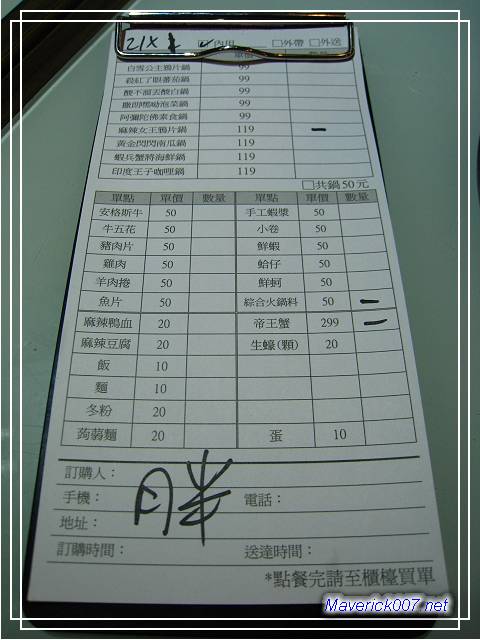 21X
☑內用 □外帶 □外送
單價 數量
白雪公主鴉片鍋 99
殺紅了眼蕃茄鍋 99
酸不溜丟酸白鍋 99
撒朗嘿呦泡菜鍋 99
阿彌陀佛素食鍋 99
麻辣女王鴉片鍋 119 一
黃金閃閃南瓜鍋 119
蝦兵蟹將海鮮鍋 119
印度王子咖哩鍋 119
□共鍋50元
單點 單價 數量 單點 單價 數量
安格斯牛 50 手工蝦漿 50
牛五花 50 小卷 50
豬肉片 50 鮮蝦 50
雞肉 50 蛤仔 50
羊肉捲 50 鮮蚵 50
魚片 50 綜合火鍋料 50 一
麻辣鴨血 20 帝王蟹 299 一
麻辣豆腐 20 生蠔(顆) 20
飯 10
麵 10
冬粉 20
蒟蒻麵 20 蛋 10
訂購人：
手機： 胖 電話：
地址：
訂購時間： 送達時間：
*點餐完請至櫃檯買單
Maverick007.net